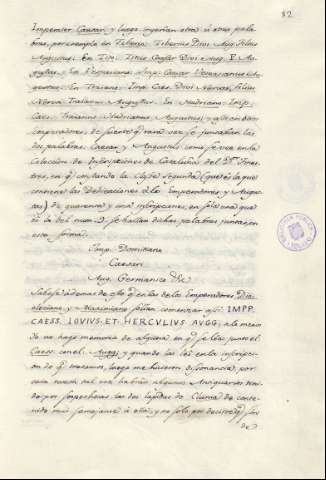 82
Imperator Caesar; y luego ingerian otra u otras pala-
bras, por exemplo en Tiberio: Tiberius Divi Aug. filius
Augustus. En Tito: Titus Caesar Divi Aug. F.
Augustus. En Vespasiano: Imp. Caesar Vespasianus Au-
gustus. En Trajano: Imp. Caes. Divi Nervae filius
Nerva Traianus Augustus. En Hadriano: Imp.
Caes. Traianus Hadrianus Augustus; y asi en los
emperadores, de suerte q rara vez se juntaban las
dos palabras Caesar y Augustus como se ve en la
Coleccion de Inscripciones de Cataluña del Dr. Fines-
tres, en q constando la Clase segunda (que es la que
contiene las Dedicaciones a los Emperadores, y Augus-
tos) de quarenta y una inscripciones, en sola una que
es la del num. 2 se hallan dichas palabras juntas, en
esta forma:
Imp. Domitiano
Caesari
Aug. Germanico
Sabese ademas de esto q en las de los Emperadores Dio-
cleciano y Maximiano solian comenzar asi: IMPP.
CAESS. IOVIUS ET HERCULIUS AUGG. a lo menos
no hago memoria de alguna en q se lea junto el
Caess. con el Augg. y quando las lei en la inscripcion
de q tratamos, luego me hicieron disonancia, por
cuia razon tal vez habran algunos Antiquarios teni-
do por sospechosas las dos lapidas de Clunia de conte-
nido mui semejante a esta, y no solo por decirse q son
de